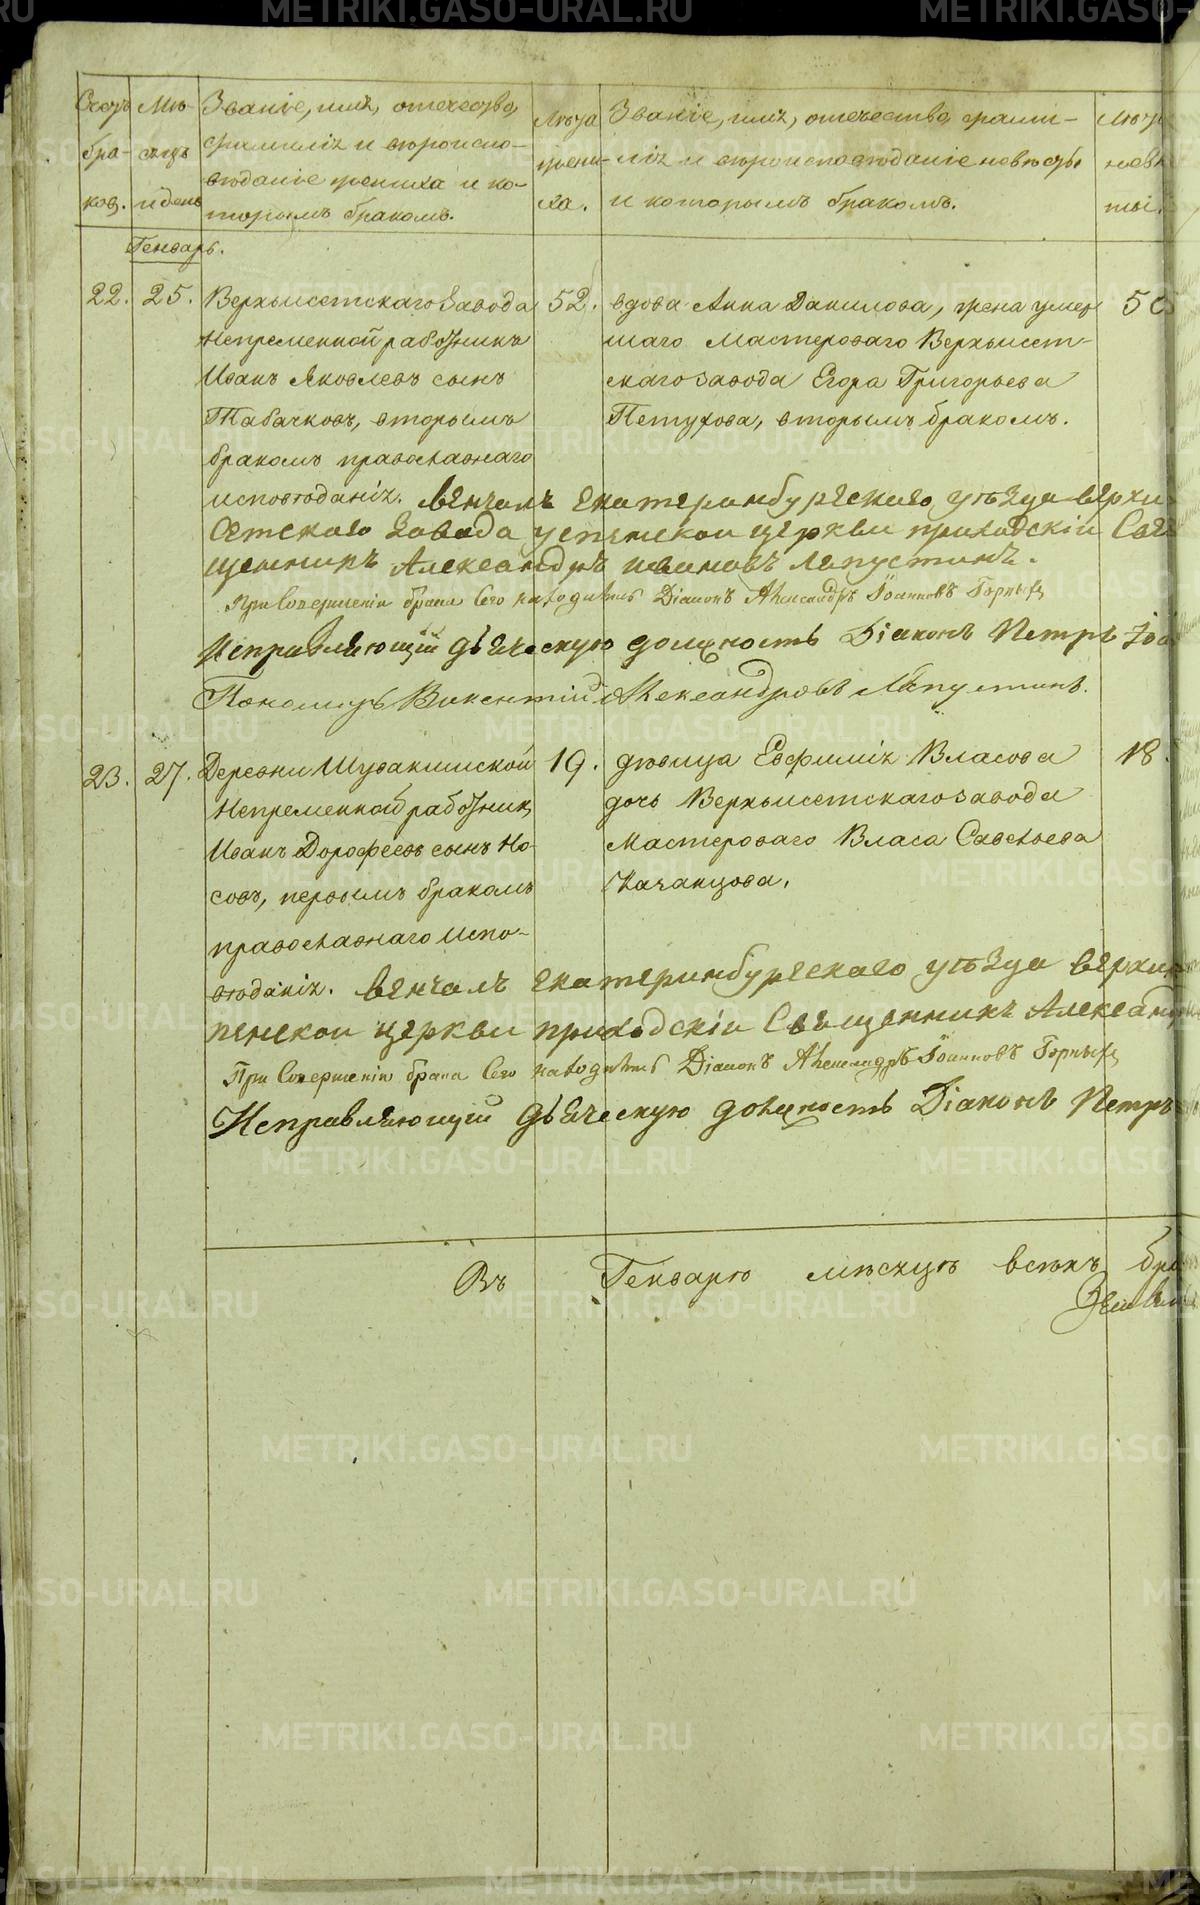 Счетъ бра-ковъ.
Мѣ-сяцъ и день
Званіе, имя, отечество,
фамилія и вѣроиспо-
вѣданіе жениха и ко-
торымъ бракомъ.
Лѣта жени-ха.
Званіе, имя, отечество, фами-
лія и вѣроисповѣданіе невѣсты
и которымъ бракомъ.
Лѣта
невѣ
ты.
Генварь.
22. 25.
Верхъисетскаго Завода
Непременной работникъ
Иванъ Яковлевъ сынъ
Табачковъ, вторымъ
бракомъ православнаго
исповѣданія.
52.
вдова Анна Данилова, жена умер
шаго Мастероваго Верхъисет-
скаго завода Егора Григорьева
Петухова, вторымъ бракомъ.
50
Венчалъ Екатеринбургскаго уѣзда Верхи
сетского Завода успенскои церкви приходскіи Свя
щенникъ Александръ Ивановъ Лапустинъ.
При Совершеніи брака Сего находился Діаконъ Александръ Іоанновъ Горныхъ
Исправляющій дьяческую должность Діаконъ Петръ Іоа
Пономарь Викентій Александровъ Лапустинъ.
23. 27.
Деревни Шувакишской
Непременной работник
Иванъ Дорофеевъ сынъ Но-
совъ, первымъ бракомъ
православнаго испо-
вѣданія.
19.
дѣвица Евфимія Власова
дочь Верхъисетскаго завода
Мастероваго Власа Савельева
Качанцова.
18.
Венчалъ Екатеринбургскаго уѣзда Верхи
пенскои церкви приходскіи Священникъ Александръ
При Совершеніи брака Сего находился Діаконъ Александръ Іоанновъ Горныхъ
Исправляющій дьяческую должность Діаконъ Петръ
Въ Генварѣ мѣсяцѣ всѣхъ бра
METRIKI.GASO-URAL.RU